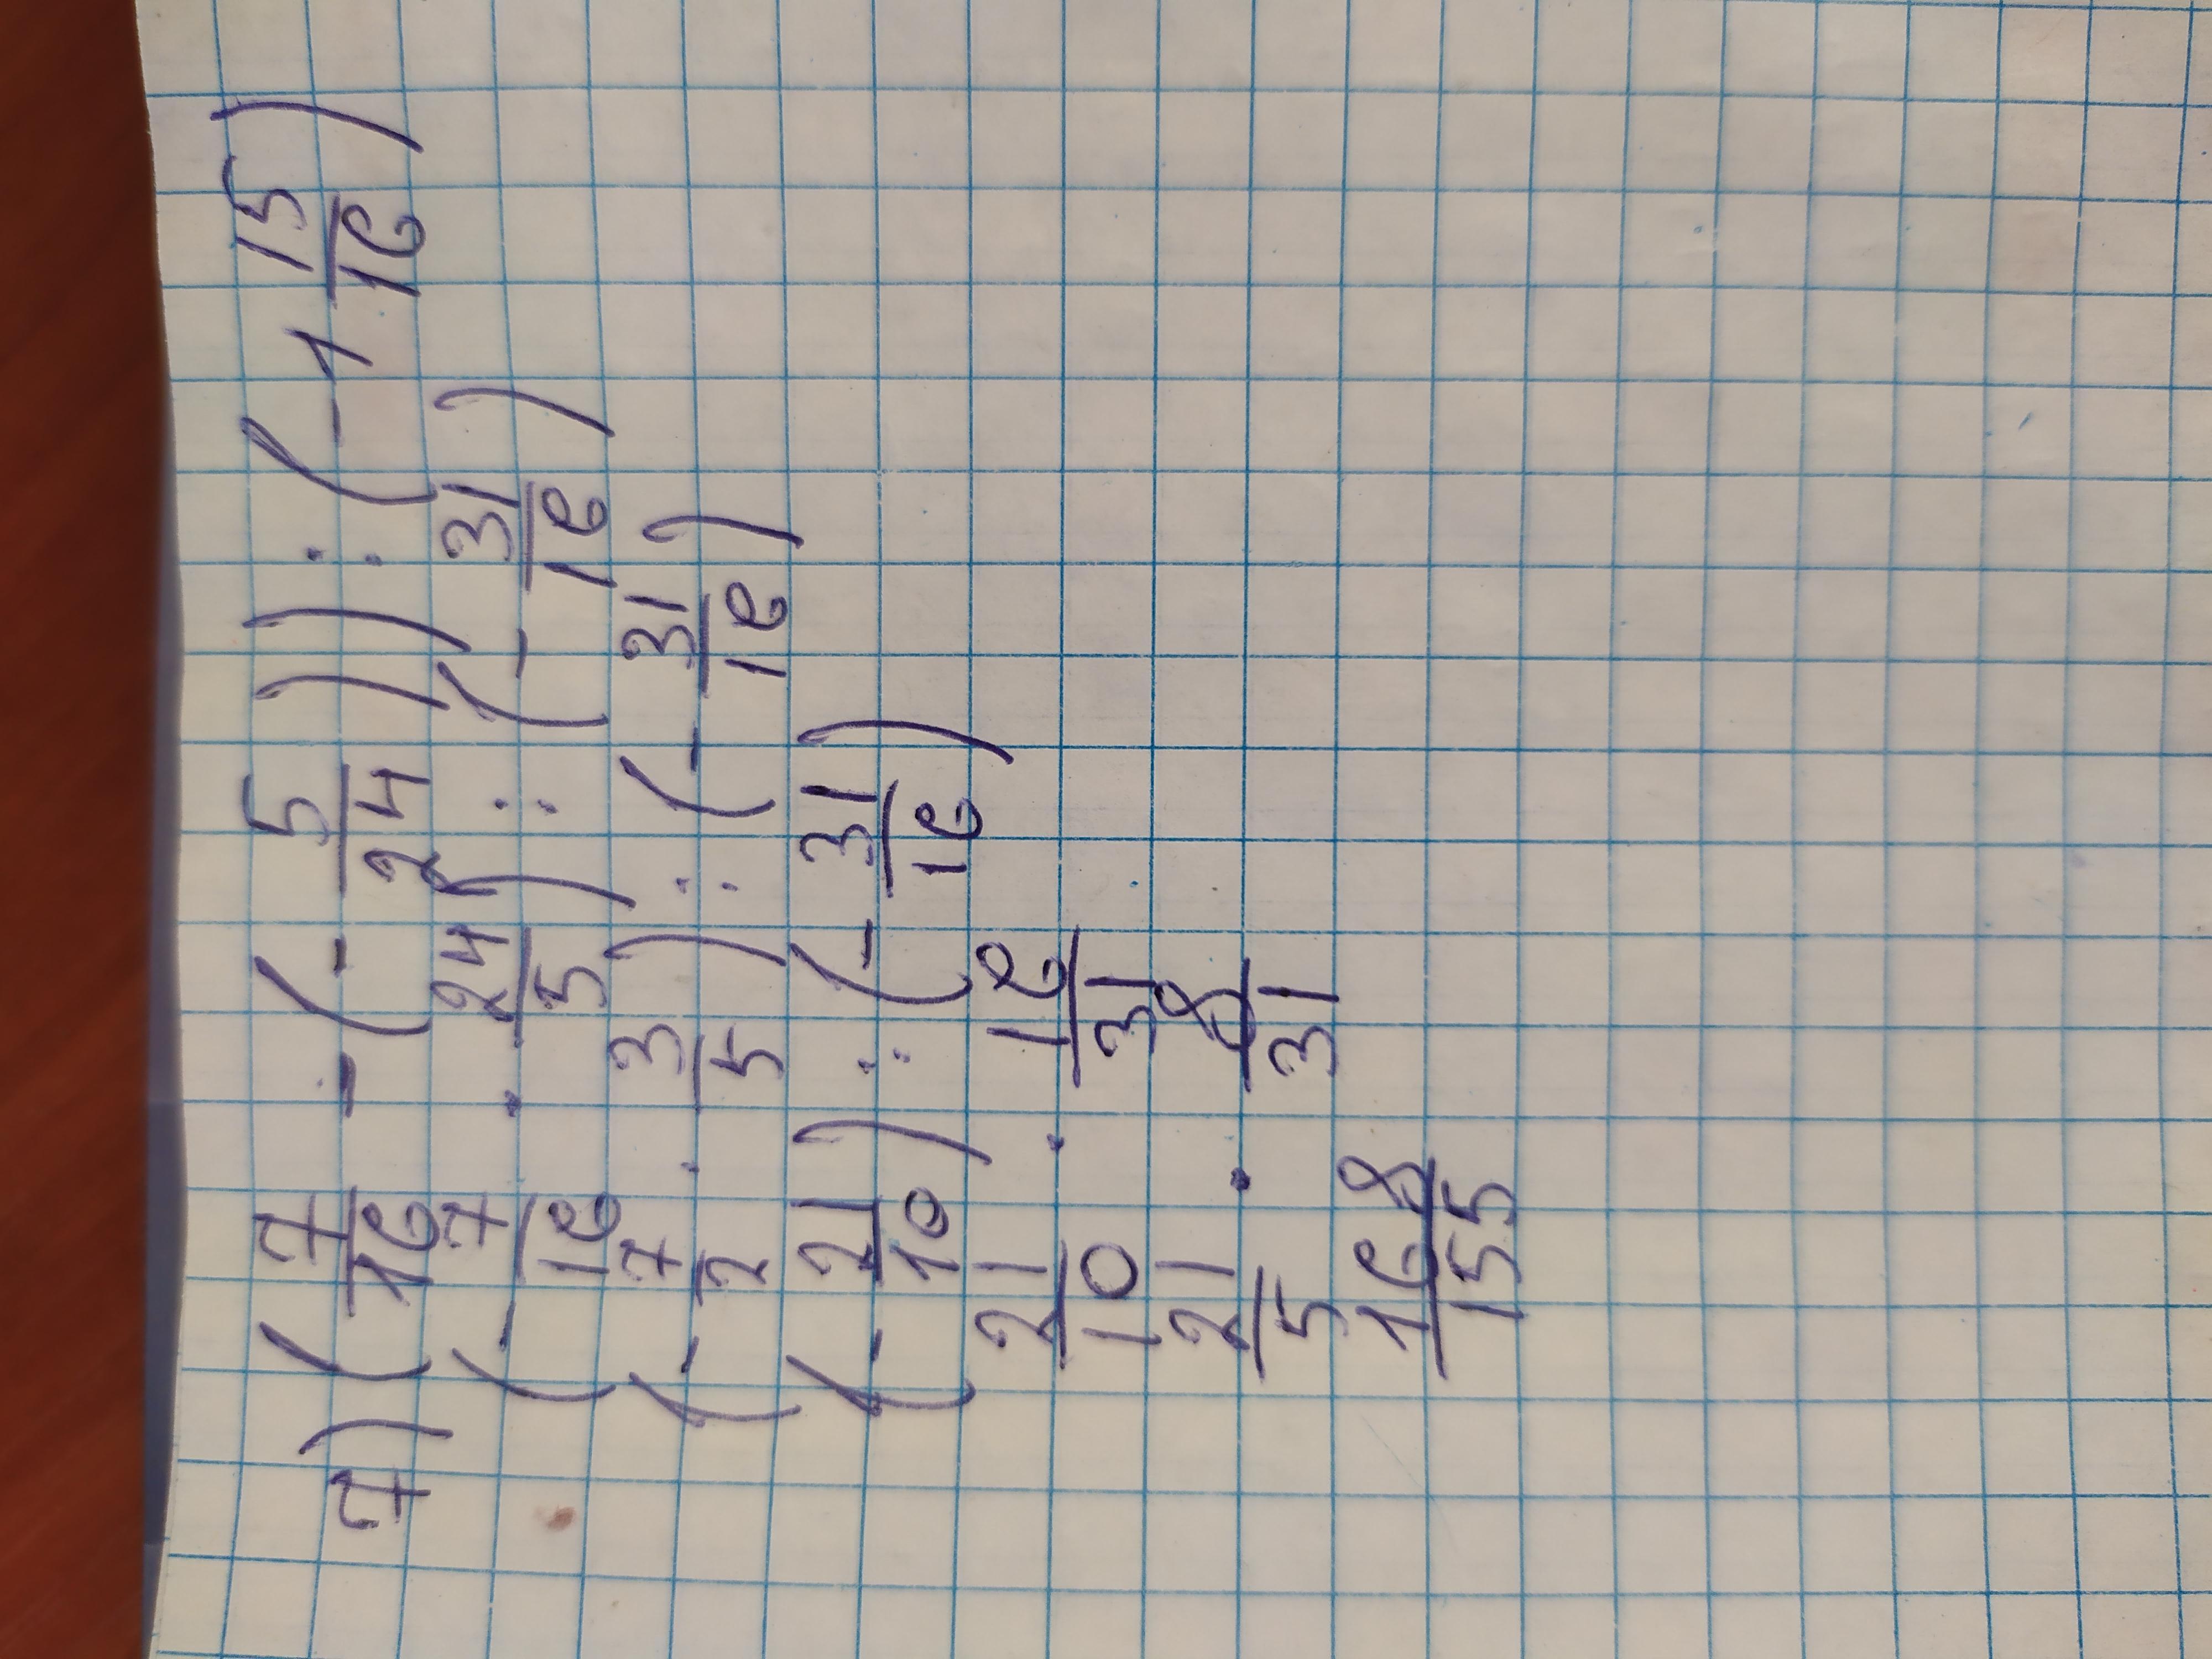 7) (7/16 - (- 5/24)) : (-1 15/16)
(- 7/16 · 24/5) : (- 31/16)
(- 7/2 · 3/5) : (- 31/16)
(- 21/10) : (- 31/16)
21/10 · 16/31
21/5 · 8/31
168/155